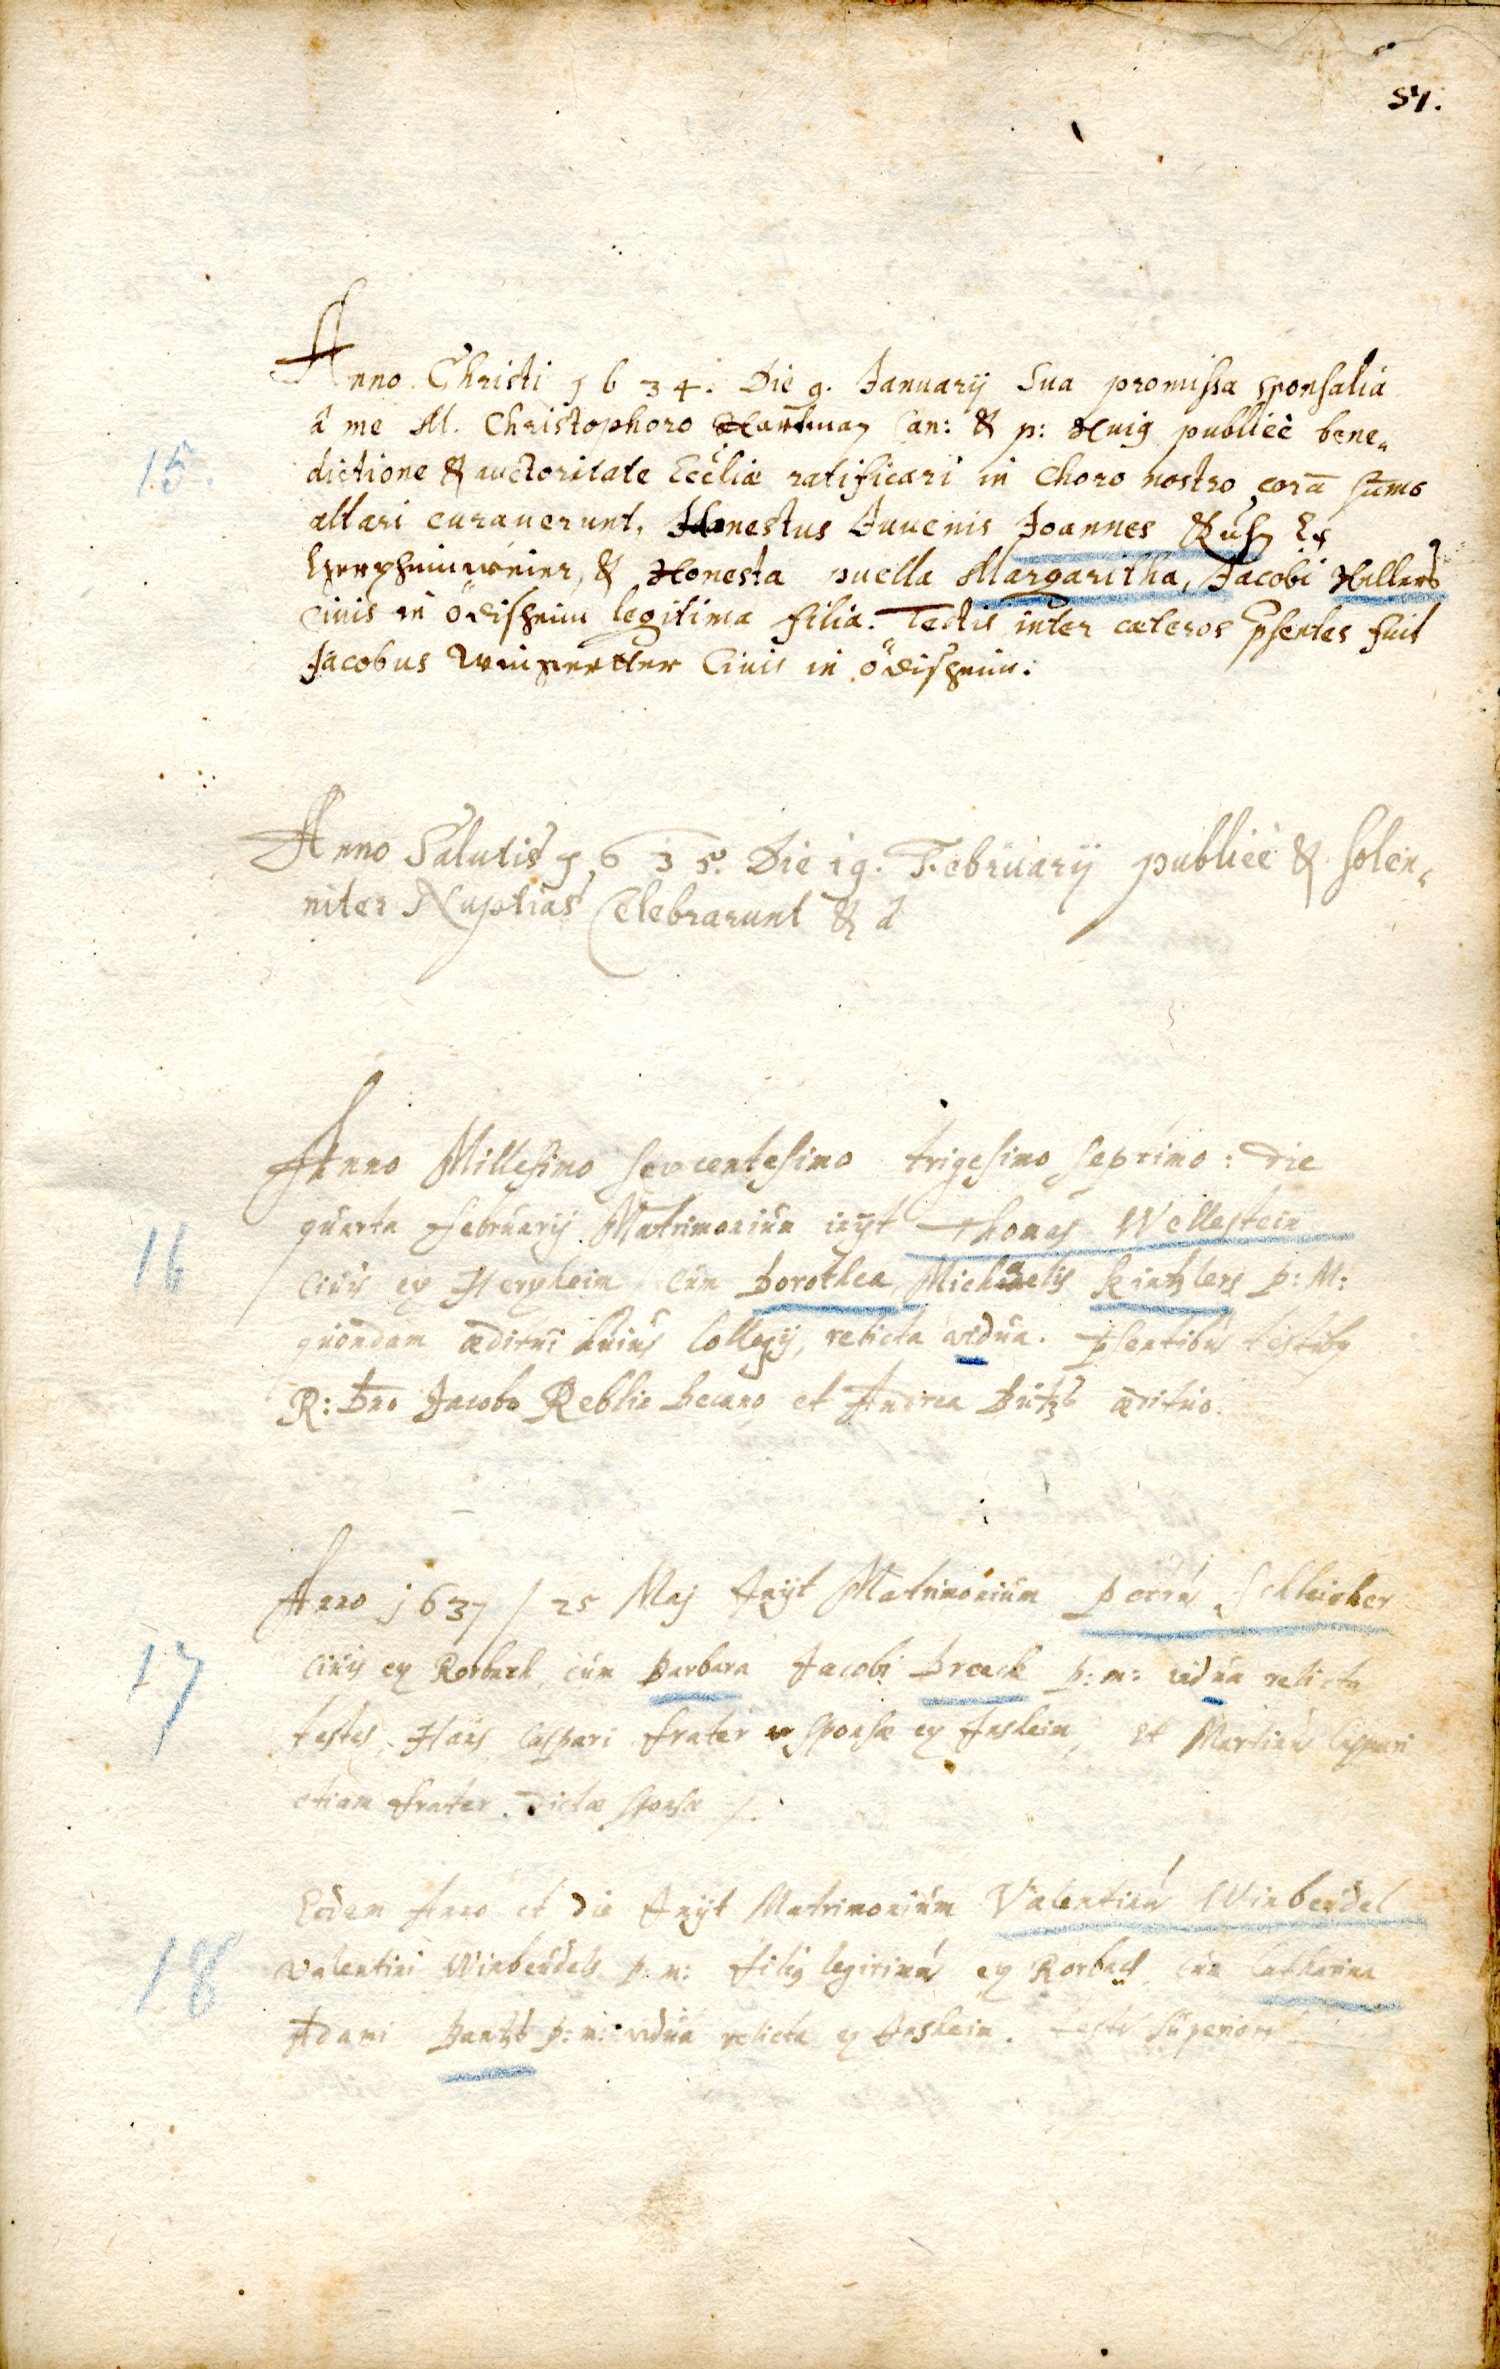 57.
Anno Christi 1634. Die 9. Januarij Sua promissa sponsalia
15.
â me M. Christophoro Hartman Can: & p: Huig publicè bene„
dictione & auctoritate Eccliæ ratificari in Choro nostro corā sum̄o
altari curauerunt, Honestus Iuuenis Joannes Ex
& Honesta puella Margaritha, Jacobi Hellers
Ciuis in Ödisheim legitima filia. Testis inter cæteros pšentes fuit
Jacobus Ciuis in Ödisheim.
Anno Salutis 1635. Die 19. February publicè & solen„
niter Nuptias Celebrarunt & â
Anno Millesimo sexcentesimo trigesimo septimo: die
16
quarta februarij Matrimoniũm inijt Thomas Wellestein
civis ex Herxheim cũm Dorothea, Michaelis Kintzlers p: M:
quondam æditui huius Collegij, relicta vidũa. pšentibũs testibus
R: Dno Jacobo Reblin Decano et Andrea æditũo.
Anno 1637 / 25 Maj Inijt Matrimoniũm Petrũs Schleicher
17
civis ex Rorbach cũm Barbara Jacobi p: m: vidũa relicta
testes, Hans Caspari frater sponsæ ex Insheim, et Martinũs Caspari
etiam frater dictæ sponsæ /.
Eodem Anno et die Inijt Matrimoniũm Valentinũs Winbeũdel
18
Valentini Winbeũdels p: m: filiũs legitimũs ex Rorbach, cũm Catharina
Adami p: m: vidũa relicta ex Insheim. testes sũperiores